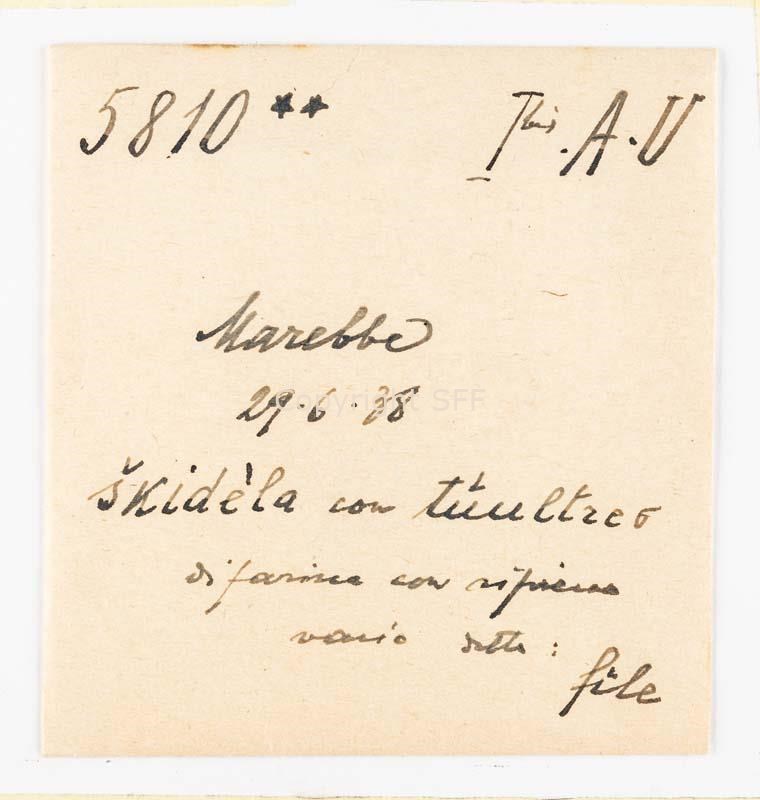 5810 ** I bis . A . U
Marebbe
29 · 6 · 38
Copyright SFF
škidèla con
di farina con ripieno
vario dette :
file